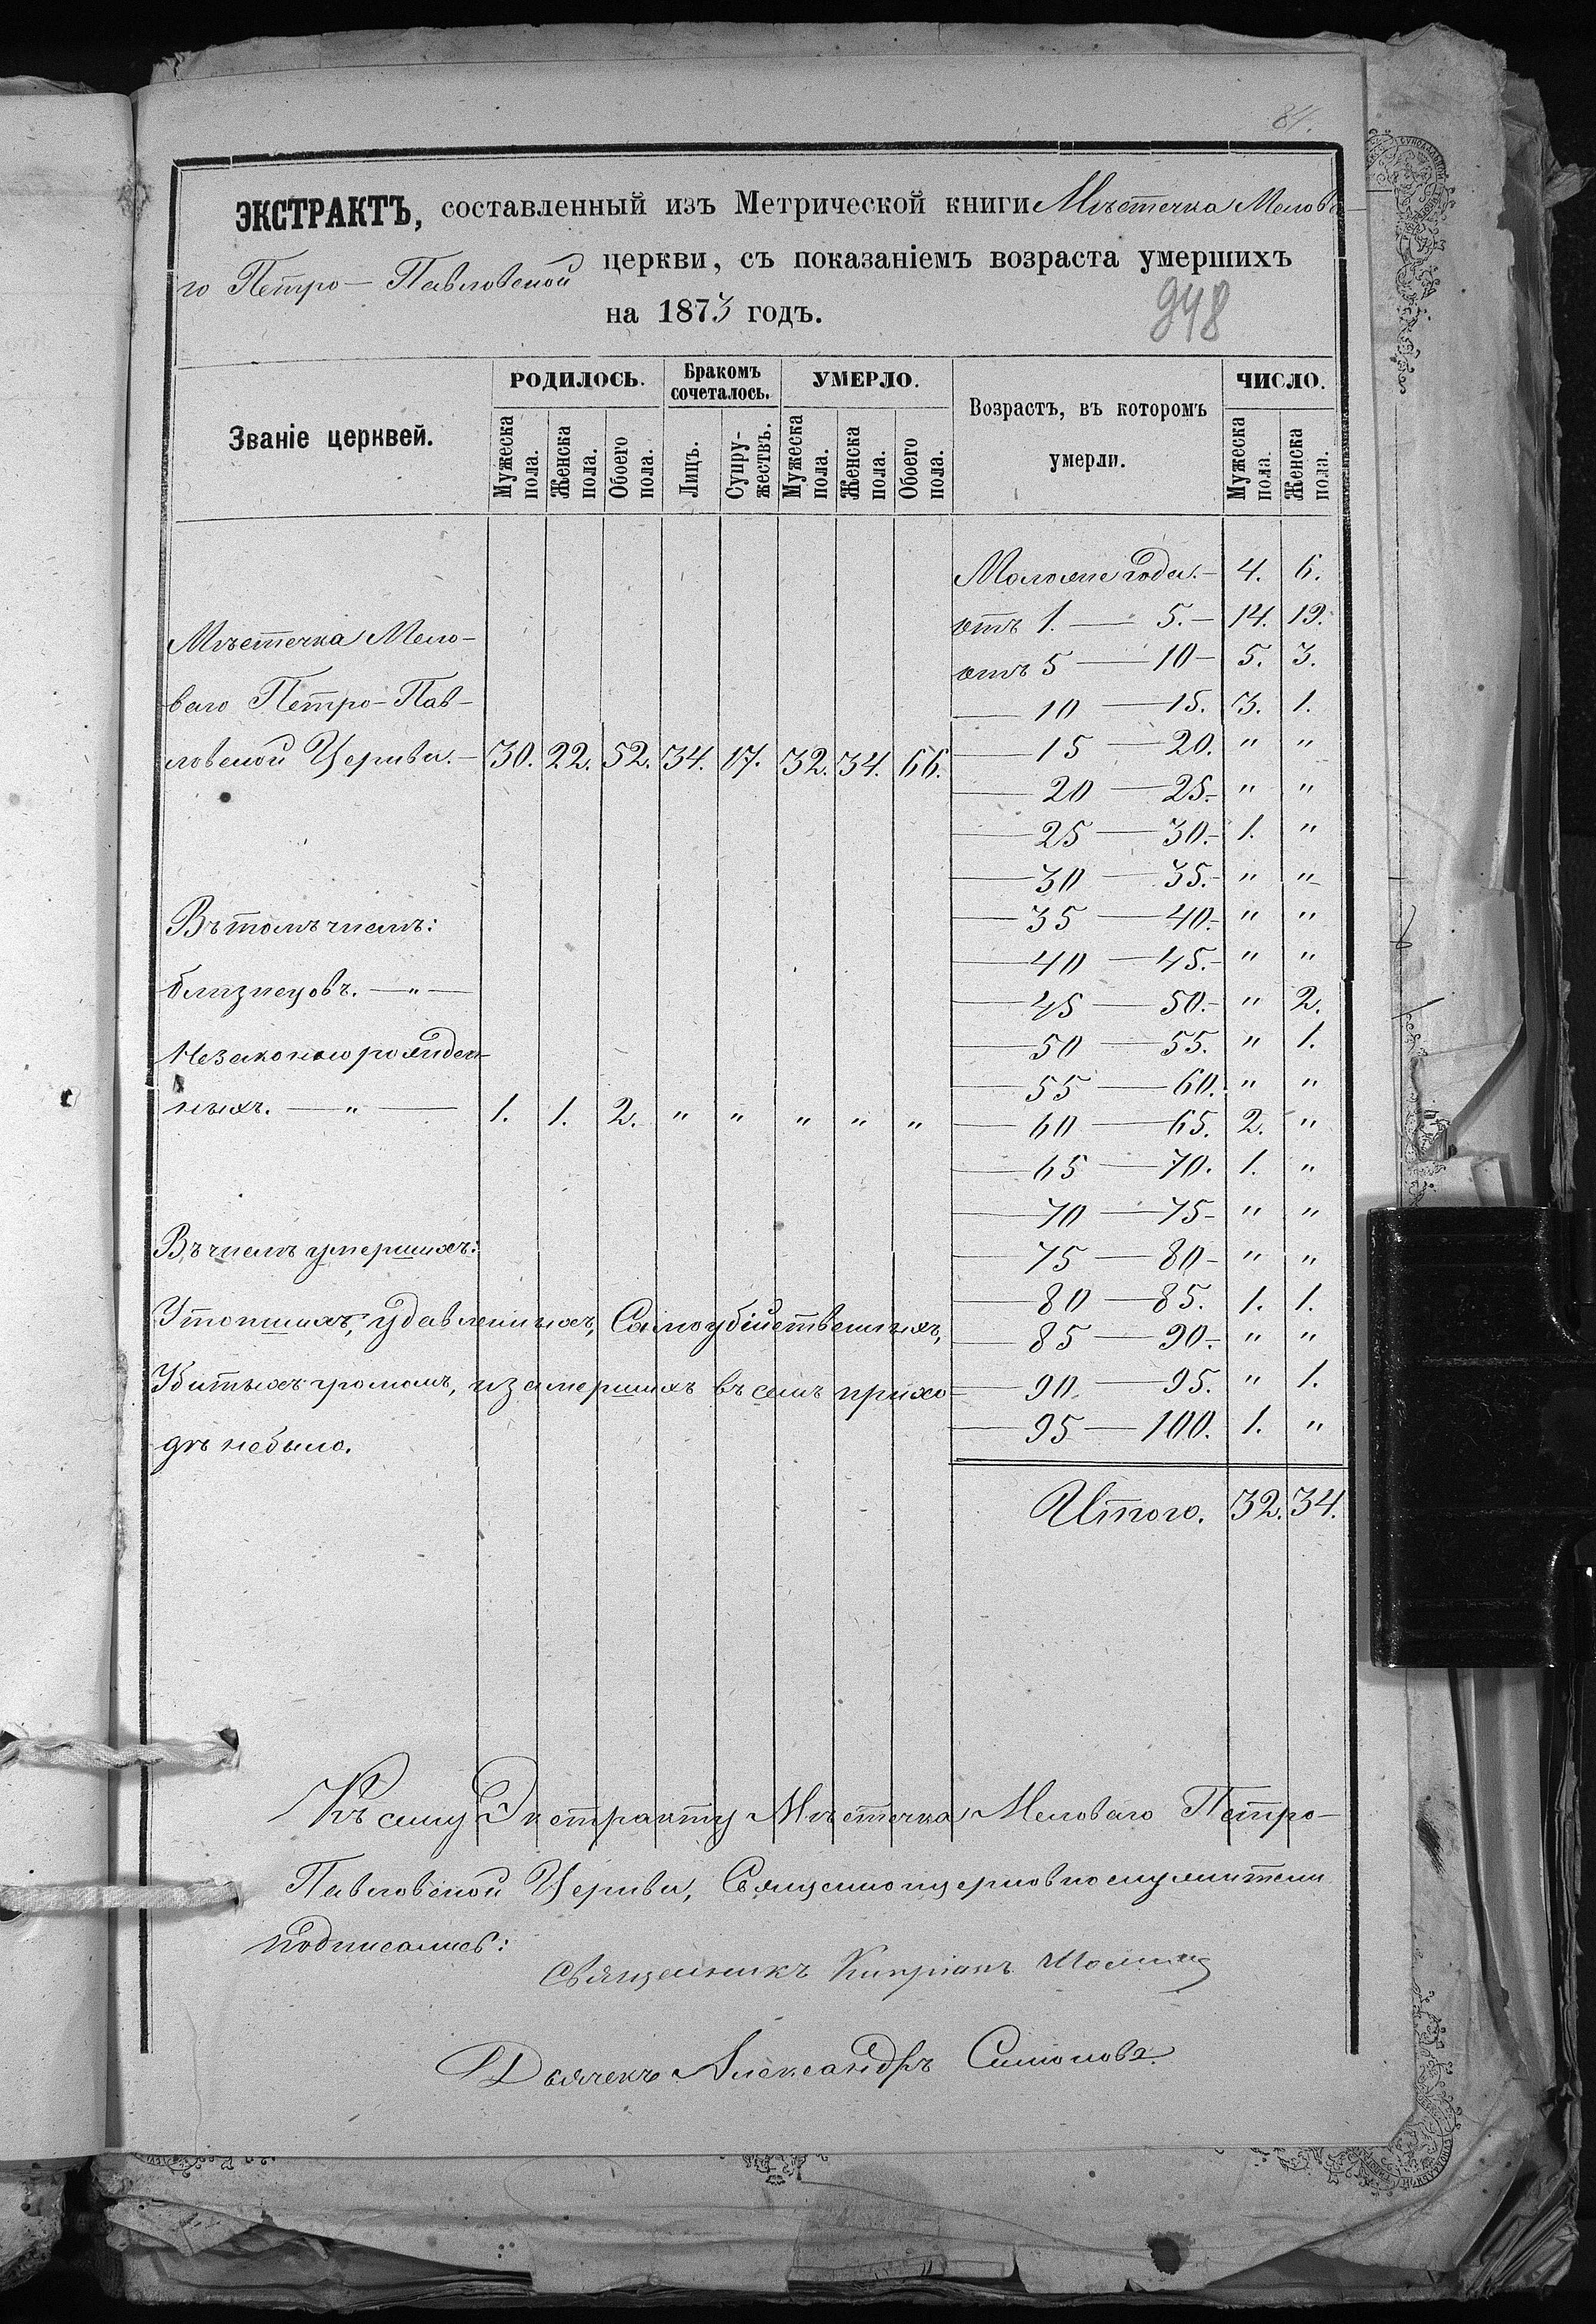 84.
ЭКСТРАКТЪ, составленный изъ Метрической книги Мѣстечка Мелова-
го Петро-Павловской церкви, съ показаніемъ возраста умершихъ
на 1873 годъ.
948
Званіе церквей.
РОДИЛОСЬ.
Бракомъ сочеталось.
УМЕРЛО.
Возрастъ, въ которомъ умерли.
ЧИСЛО.
Мужеска пола.
Женска пола.
Обоего пола.
Лицъ.
Супру-жествъ.
Мужеска пола.
Женска пола.
Обоего пола.
Мужеска пола.
Женска пола.
Моложе года.- 4. 6.
отъ 1. — 5.- 14. 19.
отъ 5 — 10- 5. 3.
— 10 — 15. 3. 1.
— 15 — 20. " "
— 20 — 25.- " "
— 25 — 30.- 1. "
— 30 — 35.- " "
— 35 — 40.- " "
— 40 — 45.- " "
— 45 — 50.- " 2.
— 50 — 55. " 1.
— 55 — 60. " "
— 60 — 65. 2. "
— 65 — 70. 1. "
— 70 — 75- " "
— 75 — 80- " "
— 80 — 85. 1. 1.
— 85 — 90.- " "
— 90. — 95. " 1.
— 95 — 100. 1. "
Итого. 32. 34.
Мѣстечка Мело-
ваго Петро-Пав-
ловской Церкви.- 30. 22. 52. 34. 17. 32. 34. 66.
Въ томъ числѣ:
близнецовъ. — " —
Незаконнорожден-
ныхъ. — " — 1. 1. 2. " " " " "
Въ числѣ умершихъ:
Утопшихъ, удавленныхъ, Самоубійственныхъ,
Убитыхъ громомъ, и замерзшихъ въ семъ прихо-
дѣ небыло.
Къ сему Экстракту Мѣстечка Меловаго Петро-
Павловской Церкви, Священноцерковнослужители
подписались:
Священникъ Кипріанъ
Дьячекъ Александръ Симоновъ.